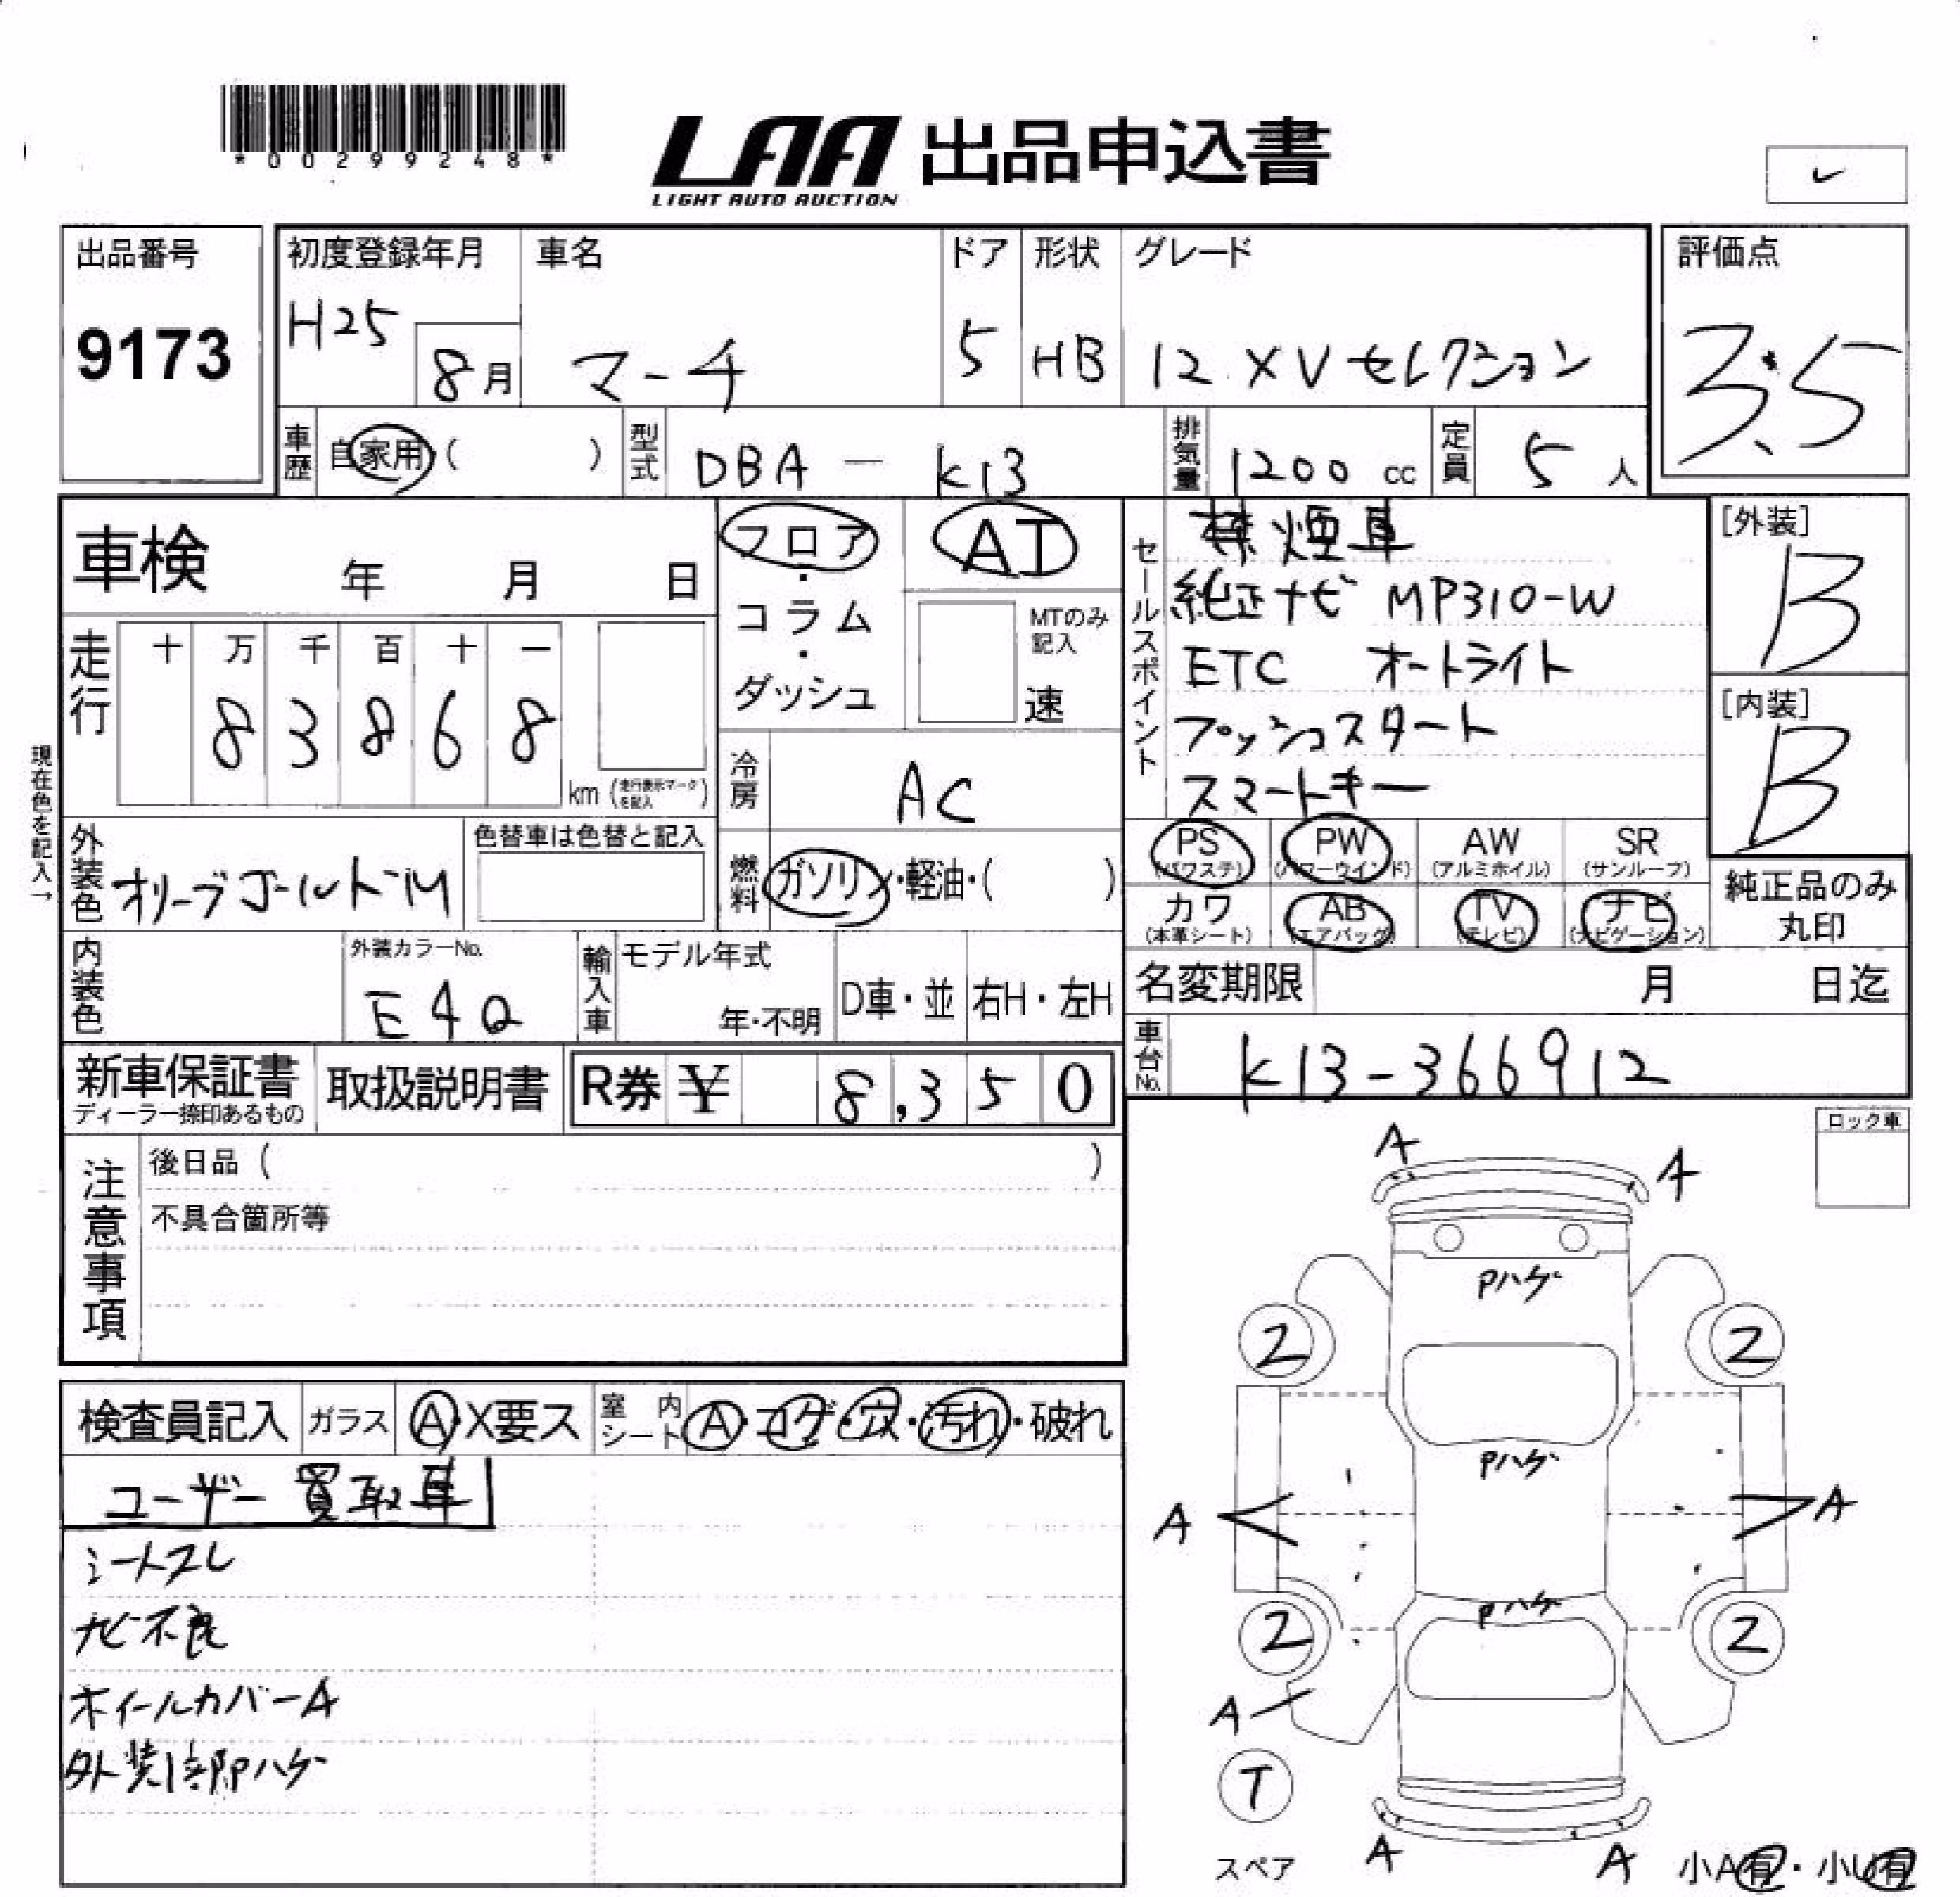 *00299248*
LAA 出品申込書
LIGHT AUTO AUCTION
出品番号
9173
初度登録年月
H25
8月
車名
マーチ
ドア
5
形状
HB
グレード
12 XVセレクション
評価点
3.5
車歴
自家用( )
型式
DBA - K13
排気量
1200 cc
定員
5 人
車検 年 月 日
走行
十 万 千 百 十 一
8 3 8 6 8
km (走行表示マークを記入)
現在色を記入→
フロア
・
コラム
・
ダッシュ
AT
MTのみ記入
速
冷房
AC
燃料
ガソリン・軽油・( )
セールスポイント
禁煙車
純正ナビ MP310-W
ETC オートライト
プッシュスタート
スマートキー
[外装]
B
[内装]
B
PS (パワステ)
PW (パワーウインド)
AW (アルミホイル)
SR (サンルーフ)
カワ (本革シート)
AB (エアバッグ)
TV (テレビ)
ナビ (ナビゲーション)
純正品のみ
丸印
外装色
オリーブゴールドM
色替車は色替と記入
内装色
外装カラーNo.
E4Q
輸入車
モデル年式
年・不明
D車・並
右H・左H
名変期限 月 日迄
車台No.
K13-366912
新車保証書
ディーラー捺印あるもの
取扱説明書
R券 ¥ 8,350
注意事項
後日品 ( )
不具合箇所等
ロック車
検査員記入
ガラス
A・X要ス
室内シート
A・コゲ・穴・汚れ・破れ
ユーザー買取車
シートスレ
ナビ不良
ホイールカバーA
外装
ハゲ
A
A
Pハゲ
2
2
Pハゲ
A
A
Pハゲ
2
2
A
T
スペア
A
A
小A有・小U有